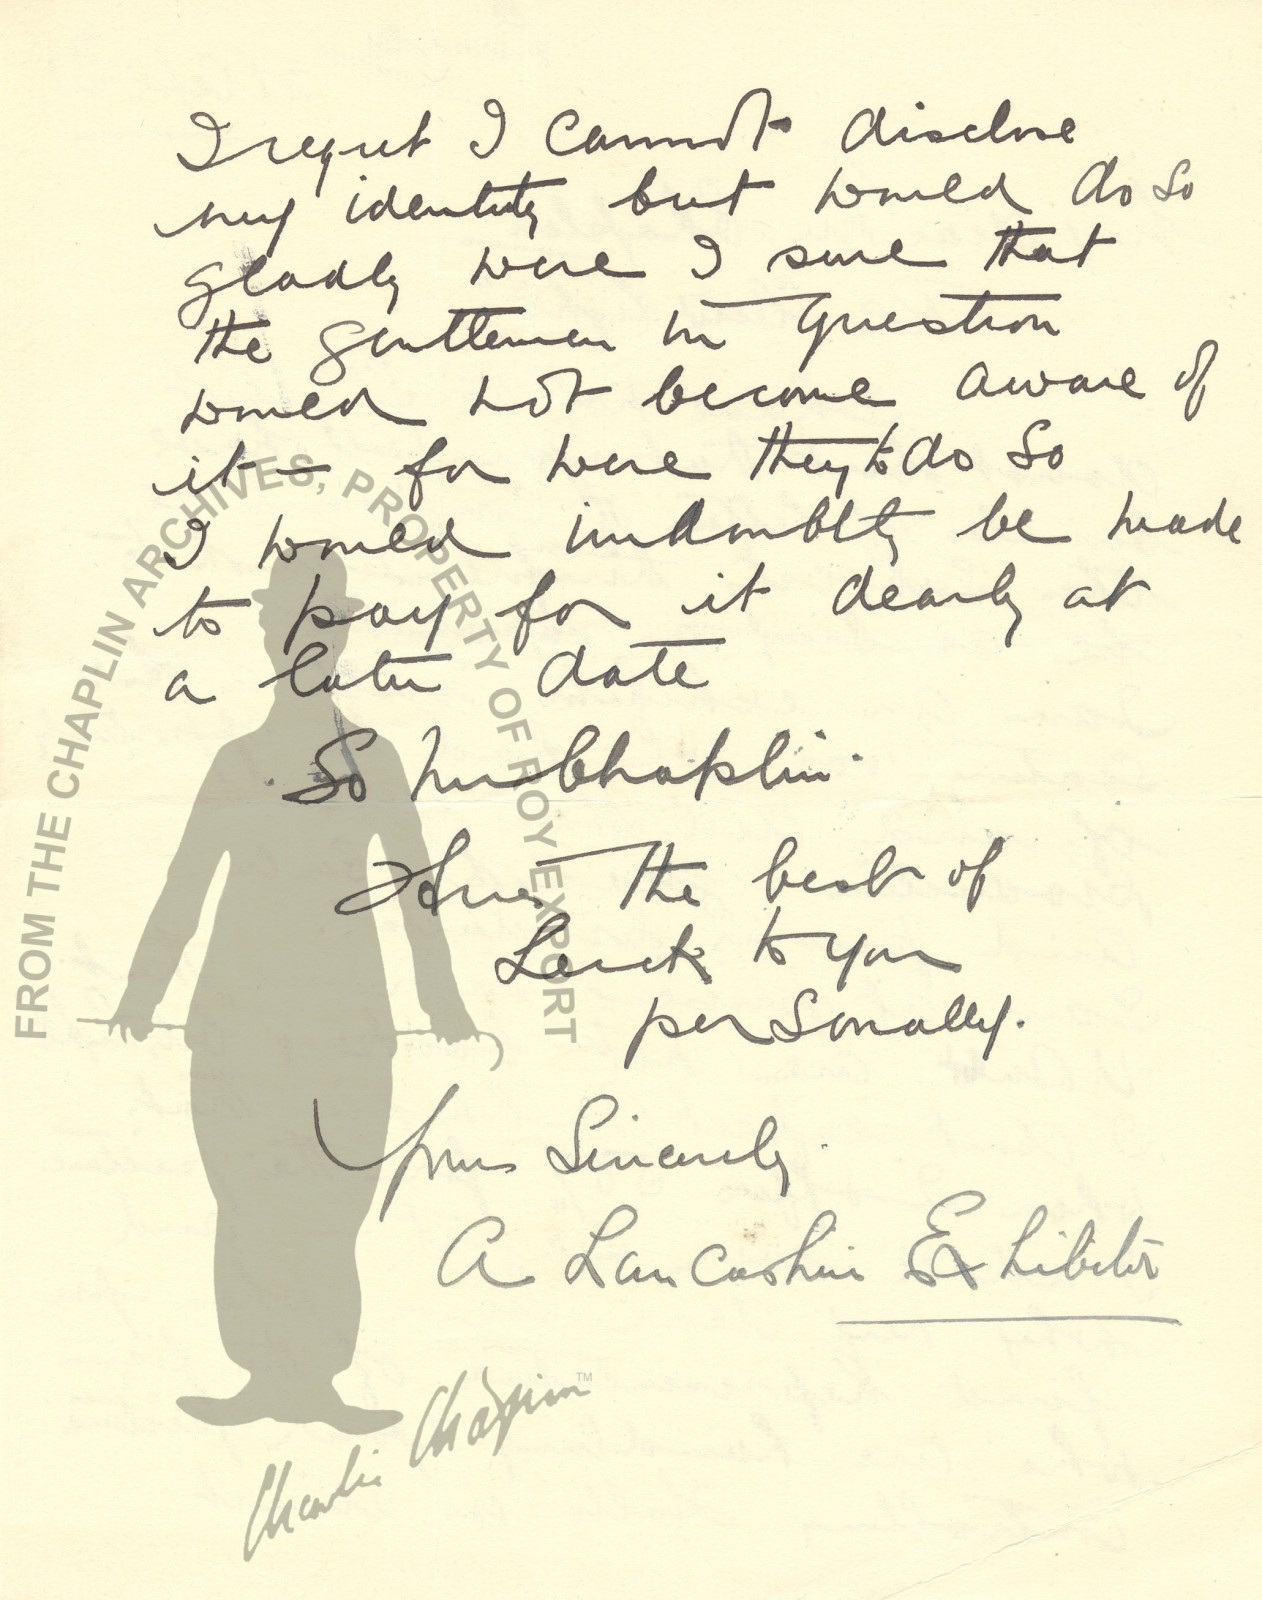 I regret I cannot disclose
my identity but would do so
gladly were I sure that
the gentlemen in question
would not become aware of
it — for were they to do so
I would undoubtly be made
to pay for it dearly at
a later date
So Mr Chaplin.
the best of
Luck to you
personally.
Yours Sincerely.
A Lancashire Exhibitor
FROM THE CHAPLIN ARCHIVES, PROPERTY OF ROY EXPORT
Charlie Chaplin™